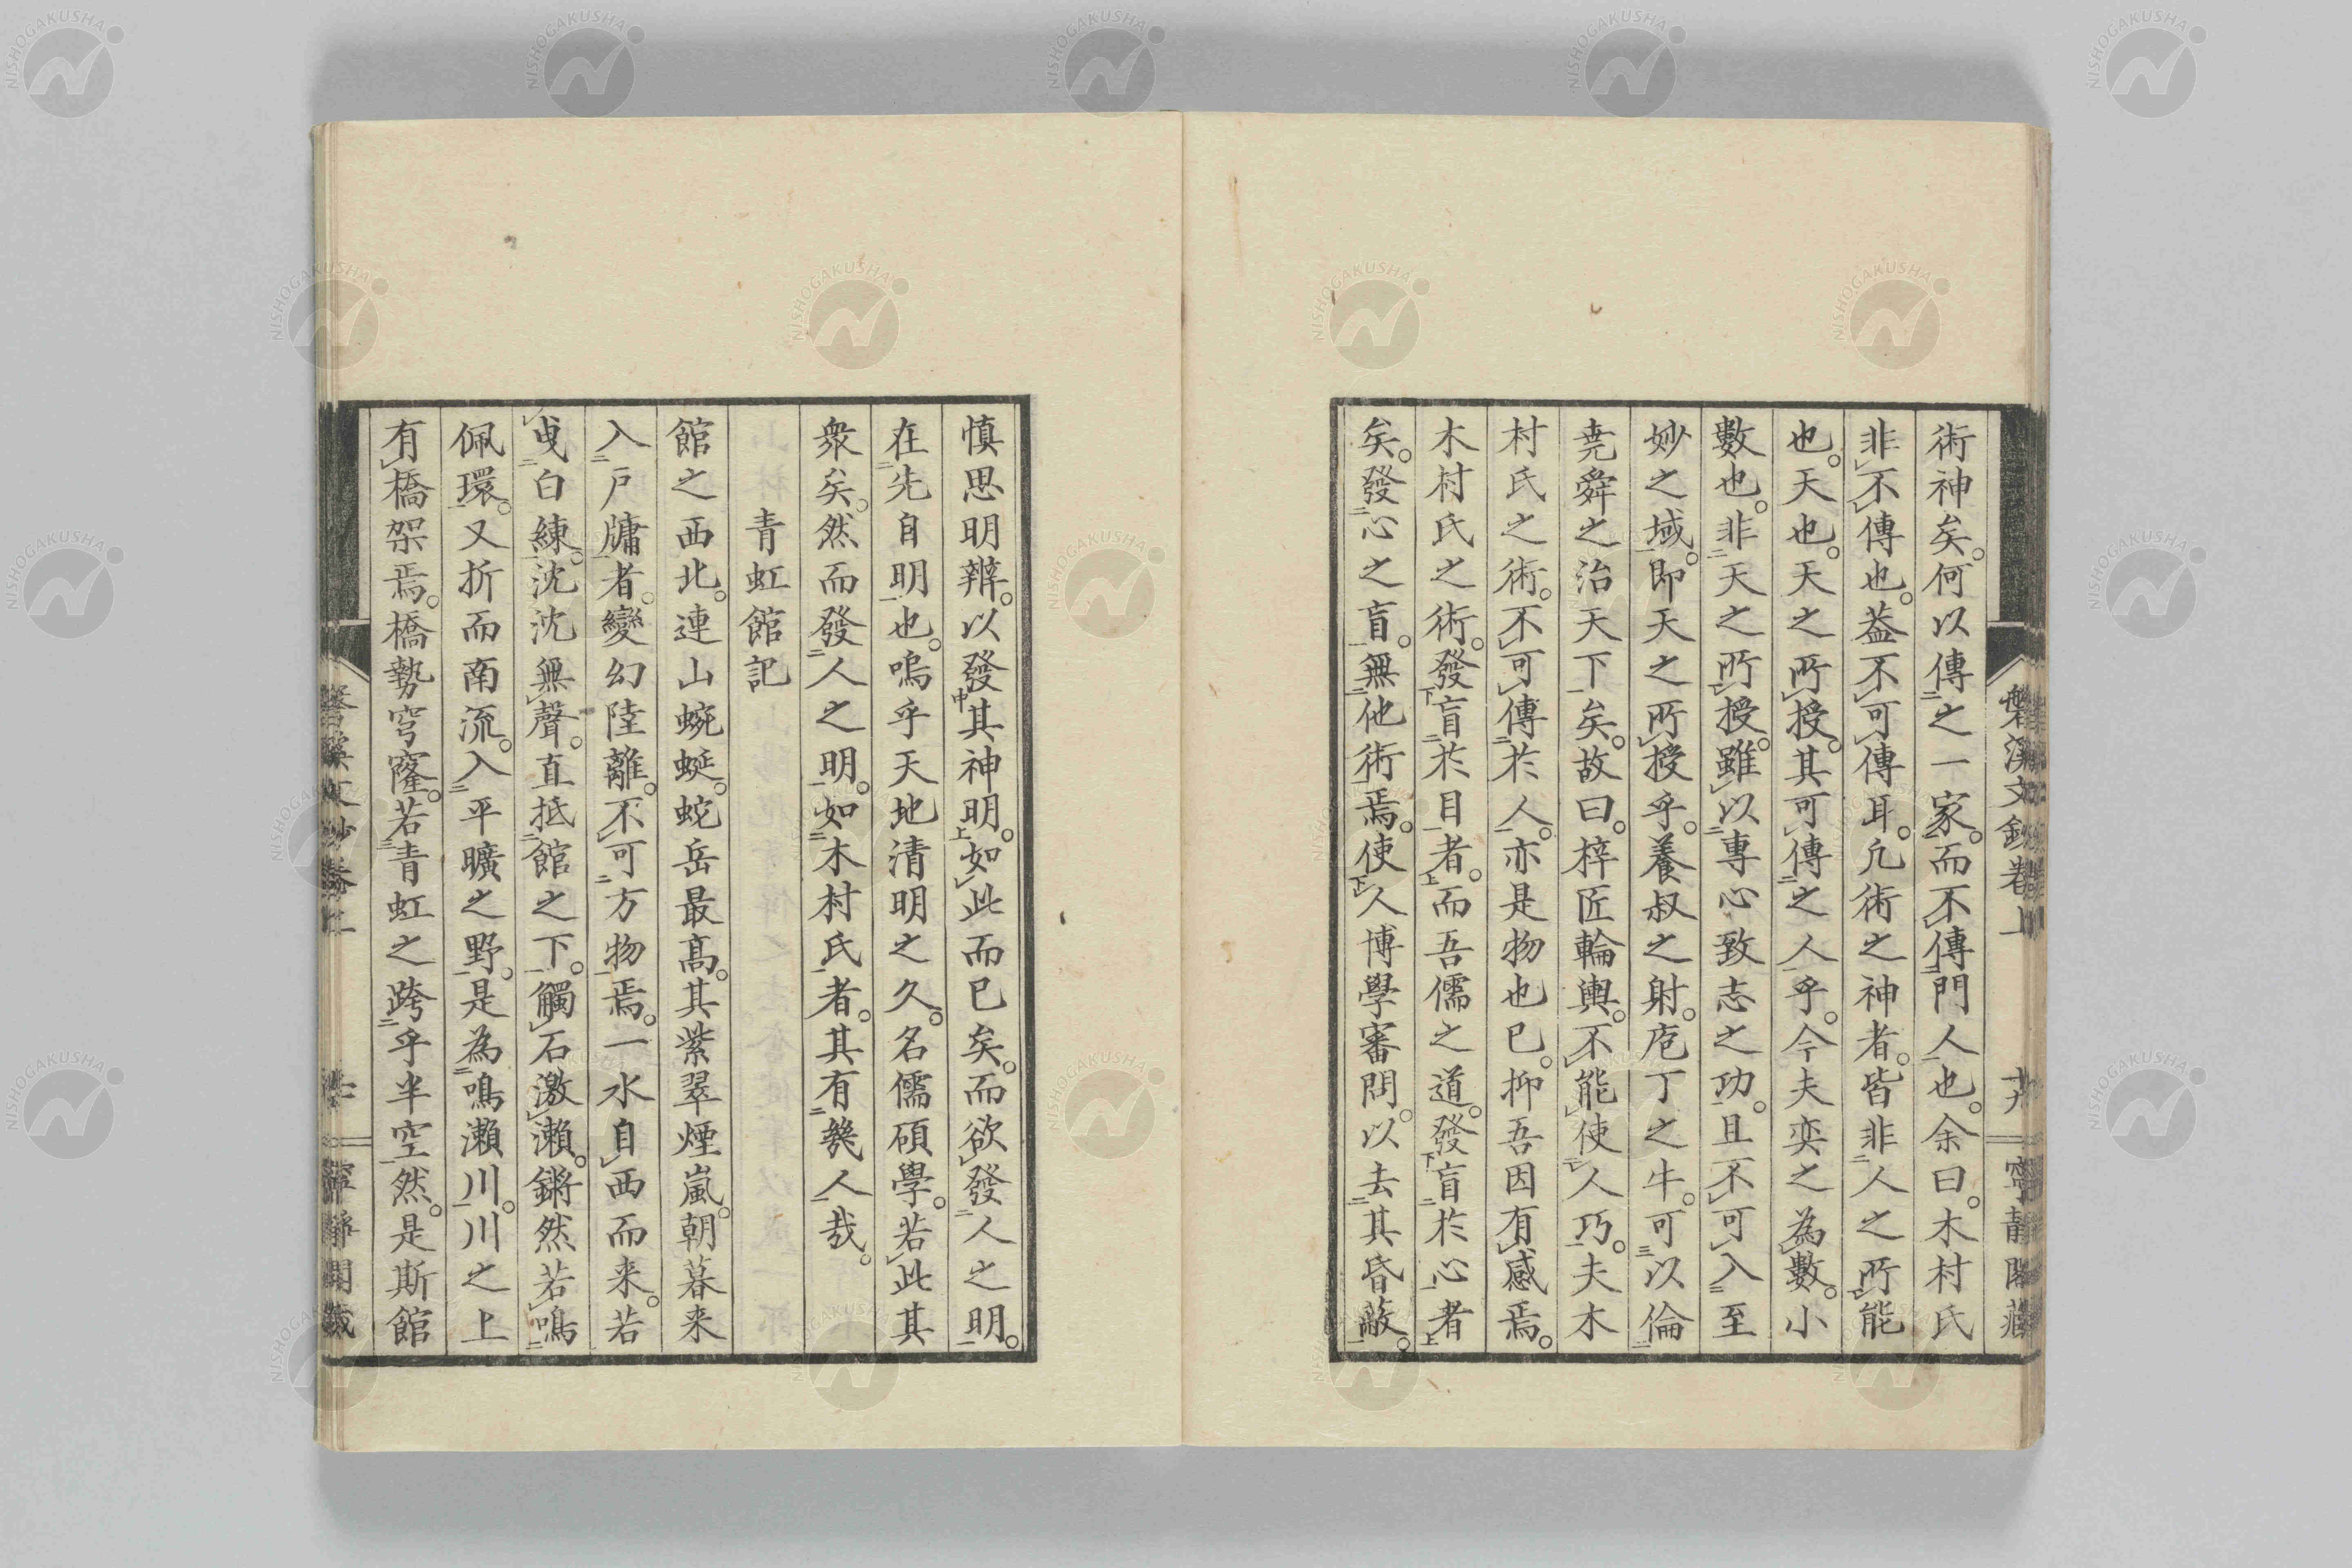 術神矣。何以傳之一家。而不傳門人也。余曰。木村氏
非不傳也。蓋不可傳耳。凢術之神者。皆非人之所能
也。天也。天之所授。其可傳之人乎。今夫奕之為數。小
數也。非天之所授。雖以專心致志之功。且不可入至
妙之域。即天之所授乎。養叔之射。庖丁之牛。可以倫
堯舜之治天下矣。故曰。梓匠輪輿。不能使人巧。夫木
村氏之術。不可傳於人。亦是物也已。抑吾因有感焉。
木村氏之術。發盲於目者。而吾儒之道。發盲於心者
矣。發心之盲。無他術焉。使人博學審問。以去其昏蔽。
磐溪文鈔卷上
寧靜閣藏
慎思明辨。以發其神明。如此而已矣。而欲發人之明。
在先自明也。嗚乎天地清明之久。名儒碩學。若此其
衆矣。然而發人之明。如木村氏者。其有幾人哉。
青虹館記
館之西北。連山蜿蜒。蛇岳最高。其紫翠煙嵐。朝暮来
入戸牖者。變幻陸離。不可方物焉。一水自西而来。若
曳白練。沈沈無聲。直抵館之下。觸石激瀨。鏘然若鳴
佩環。又折而南流。入平曠之野。是為鳴瀨川。川之上
有橋架焉。橋勢穹窿。若青虹之跨乎半空然。是斯館
NISHOGAKUSHA